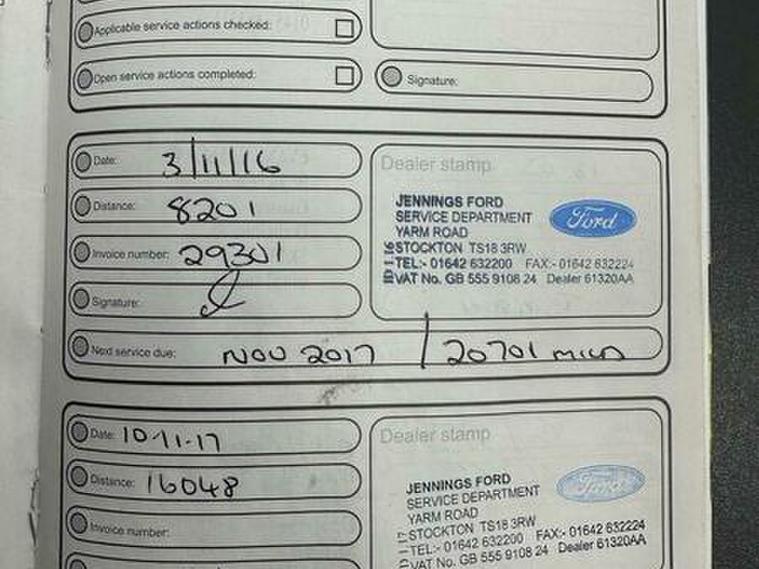 Applicable service actions checked:
Open service actions completed:
Signature:
Date: 3/11/16
Distance: 8201
Invoice number: 29301
Signature:
Next service due: NOV 2017 / 20701 miles
Dealer stamp
JENNINGS FORD
SERVICE DEPARTMENT
YARM ROAD
STOCKTON TS18 3RW
TEL:- 01642 632200 FAX:- 01642 632224
VAT No. GB 555 9108 24 Dealer 61320AA
Ford
Date: 10-11-17
Distance: 16048
Invoice number:
Dealer stamp
JENNINGS FORD
SERVICE DEPARTMENT
YARM ROAD
STOCKTON TS18 3RW
TEL:- 01642 632200 FAX:- 01642 632224
VAT No. GB 555 9108 24 Dealer 61320AA
Ford